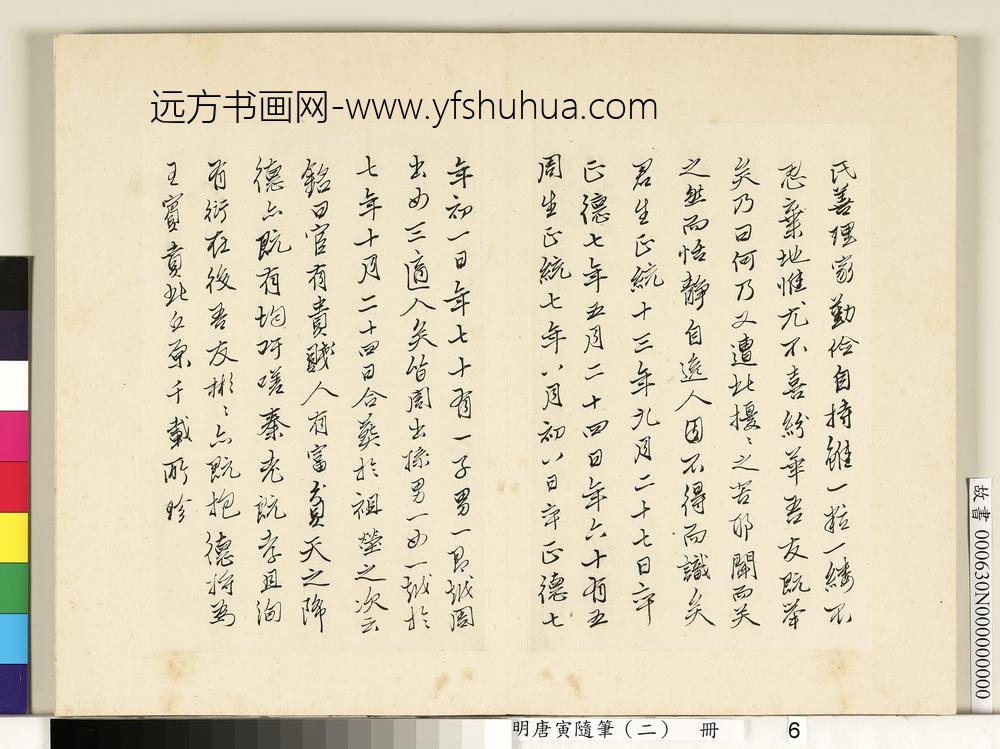 远方书画网-www.yfshuhua.com
氏善理家勤儉自持雖一粒一縷不
忍棄地惟尤不喜紛華吾友既举
矣乃曰何乃又遭此擾〻之苦耶聞而笑
之然而恬靜自逸人固不得而識矣
君生正統十三年九月二十七日卒
正德七年五月二十四日年六十有五
周生正統七年八月初八日卒正德七
年初一日年七十有一子男一即娍周
出女三適人矣皆周出孫男一女一娍於
七年十月二十四日合葬於祖塋之次云
銘曰官有貴賤人有富貧天之降
德亦既有均吁嗟秦老既孝且洵
有衍在後吾友彬〻亦既抱德將為
王賓賁此丘原千載所珍
故書 000630N000000000
明唐寅隨筆(二) 冊 6